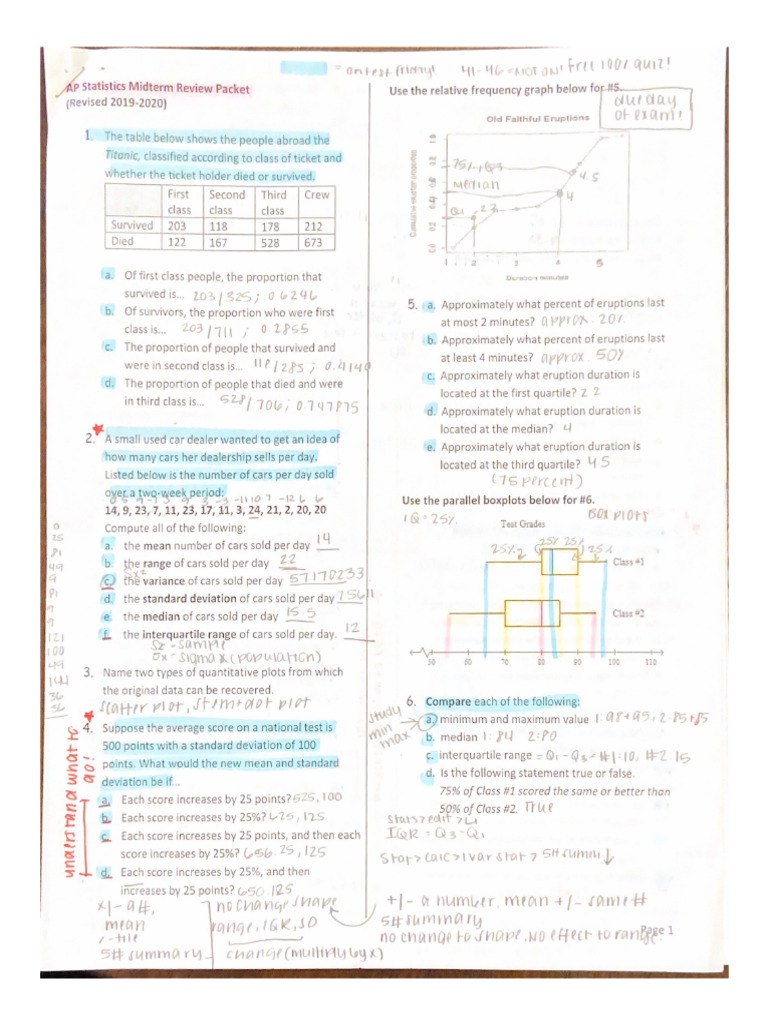 = on test friday! 41-46 = NOT ON! free 100% quiz!
AP Statistics Midterm Review Packet
(Revised 2019-2020)
1. The table below shows the people abroad the
Titanic, classified according to class of ticket and
whether the ticket holder died or survived.
First class Second class Third class Crew
Survived 203 118 178 212
Died 122 167 528 673
a. Of first class people, the proportion that
survived is... 203/325; 0.6246
b. Of survivors, the proportion who were first
class is... 203/711; 0.2855
c. The proportion of people that survived and
were in second class is... 118/285; 0.4140
d. The proportion of people that died and were
in third class is... 528/706; 0.747875
2. A small used car dealer wanted to get an idea of
how many cars her dealership sells per day.
Listed below is the number of cars per day sold
over a two-week period:
14, 9, 23, 7, 11, 23, 17, 11, 3, 24, 21, 2, 20, 20
Compute all of the following:
a. the mean number of cars sold per day 14
b. the range of cars sold per day 22
c. the variance of cars sold per day 57.170233
d. the standard deviation of cars sold per day 7.5611
e. the median of cars sold per day 15.5
f. the interquartile range of cars sold per day. 12
Sx - sample
σx - sigma x (population)
0
25
81
49
9
81
9
9
121
100
49
144
36
36
3. Name two types of quantitative plots from which
the original data can be recovered.
scatter plot, stem+dot plot
4. Suppose the average score on a national test is
500 points with a standard deviation of 100
points. What would the new mean and standard
deviation be if...
a. Each score increases by 25 points? 525, 100
b. Each score increases by 25%? 625, 125
c. Each score increases by 25 points, and then each
score increases by 25%? 656.25, 125
d. Each score increases by 25%, and then
increases by 25 points? 650, 125
understand what to do!
x/- a #,
mean
/-tile
5# summary
no change shape
range, IQR, SD
change (multiply by x)
Use the relative frequency graph below for #5.
due day
of exam!
Old Faithful Eruptions
Cumulative eruption proportion
1.0
0.8
0.6
0.4
0.2
0.0
75%, Q3
4.5
median
4
Q1
1 2 3 4 5
Duration minutes
5. a. Approximately what percent of eruptions last
at most 2 minutes? approx. 20%
b. Approximately what percent of eruptions last
at least 4 minutes? approx. 50%
c. Approximately what eruption duration is
located at the first quartile? 2.2
d. Approximately what eruption duration is
located at the median? 4
e. Approximately what eruption duration is
located at the third quartile? 4.5
(75 percent)
Use the parallel boxplots below for #6.
IQ = 25%. BOX PLOTS
Test Grades
25% 25% 25% 25%
Class #1
Class #2
50 60 70 80 90 100 110
6. Compare each of the following:
study
min
max
a. minimum and maximum value
b. median 1: 84 2: 80
c. interquartile range = Q1 - Q3 = #1: 10, #2. 15
d. Is the following statement true or false.
75% of Class #1 scored the same or better than
50% of Class #2. True
Stat > edit > L1
IQR = Q3 - Q1
Stat > calc > 1 var stat > 5# summ ↓
+/- a number, mean +/- same #
5# summary
no change to shape, no effect to range.
Page 1